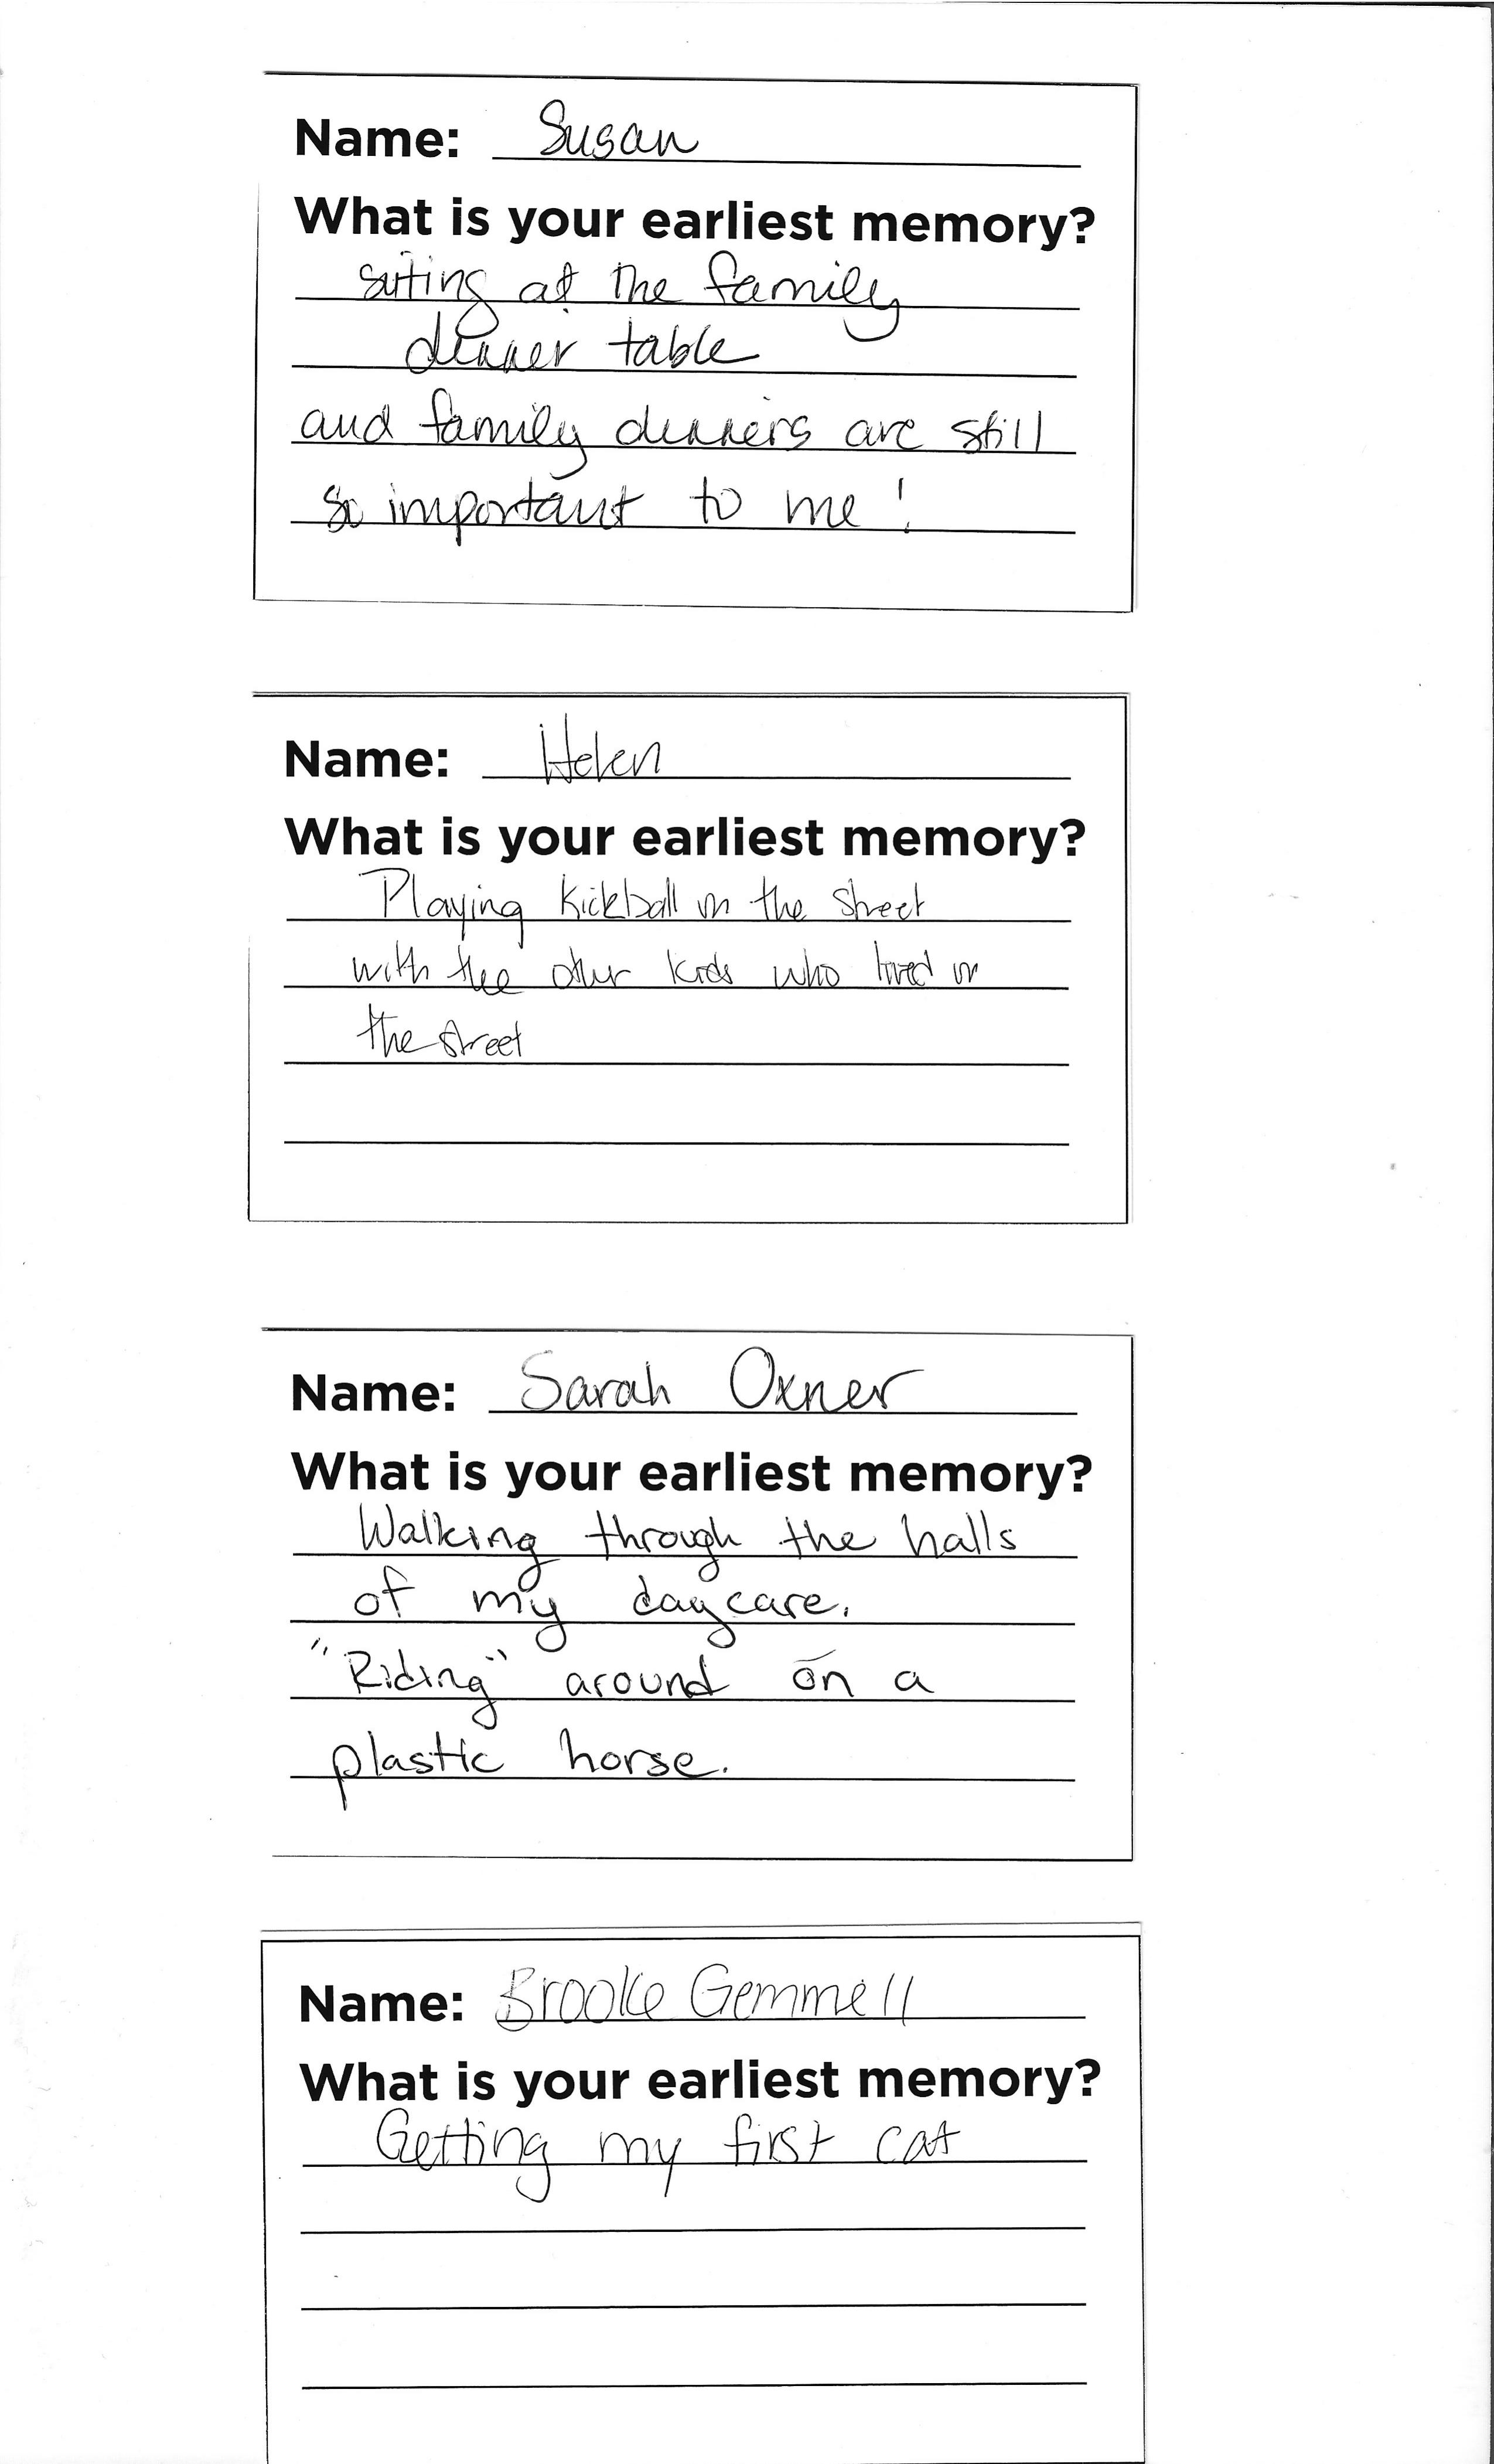 Name: Susan
What is your earliest memory?
sitting at the family
dinner table
and family dinners are still
so important to me!
Name: Helen
What is your earliest memory?
Playing kickball in the street
with the other kids who lived on
the street
Name: Sarah Oxner
What is your earliest memory?
Walking through the halls
of my daycare.
"Riding" around on a
plastic horse.
Name: Brooke Gemmell
What is your earliest memory?
Getting my first cat